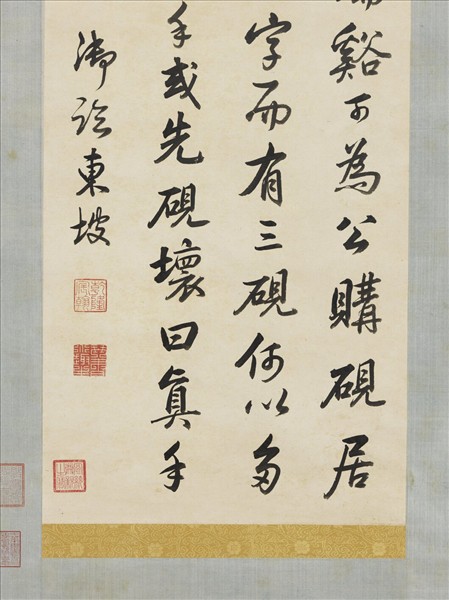 谿可為公購硯居
字而有三硯何以多
手或先硯壞曰真手
御臨東坡